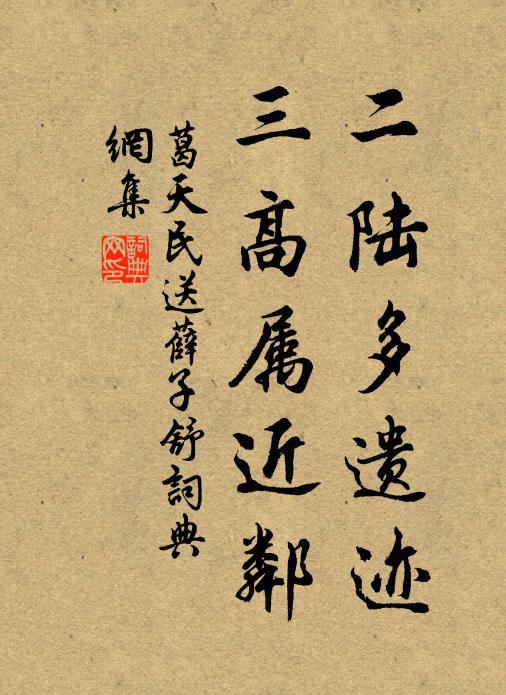 二陆多遗迹
三高属近鄰
葛天民送薛子舒詞典
網集
詞典网印